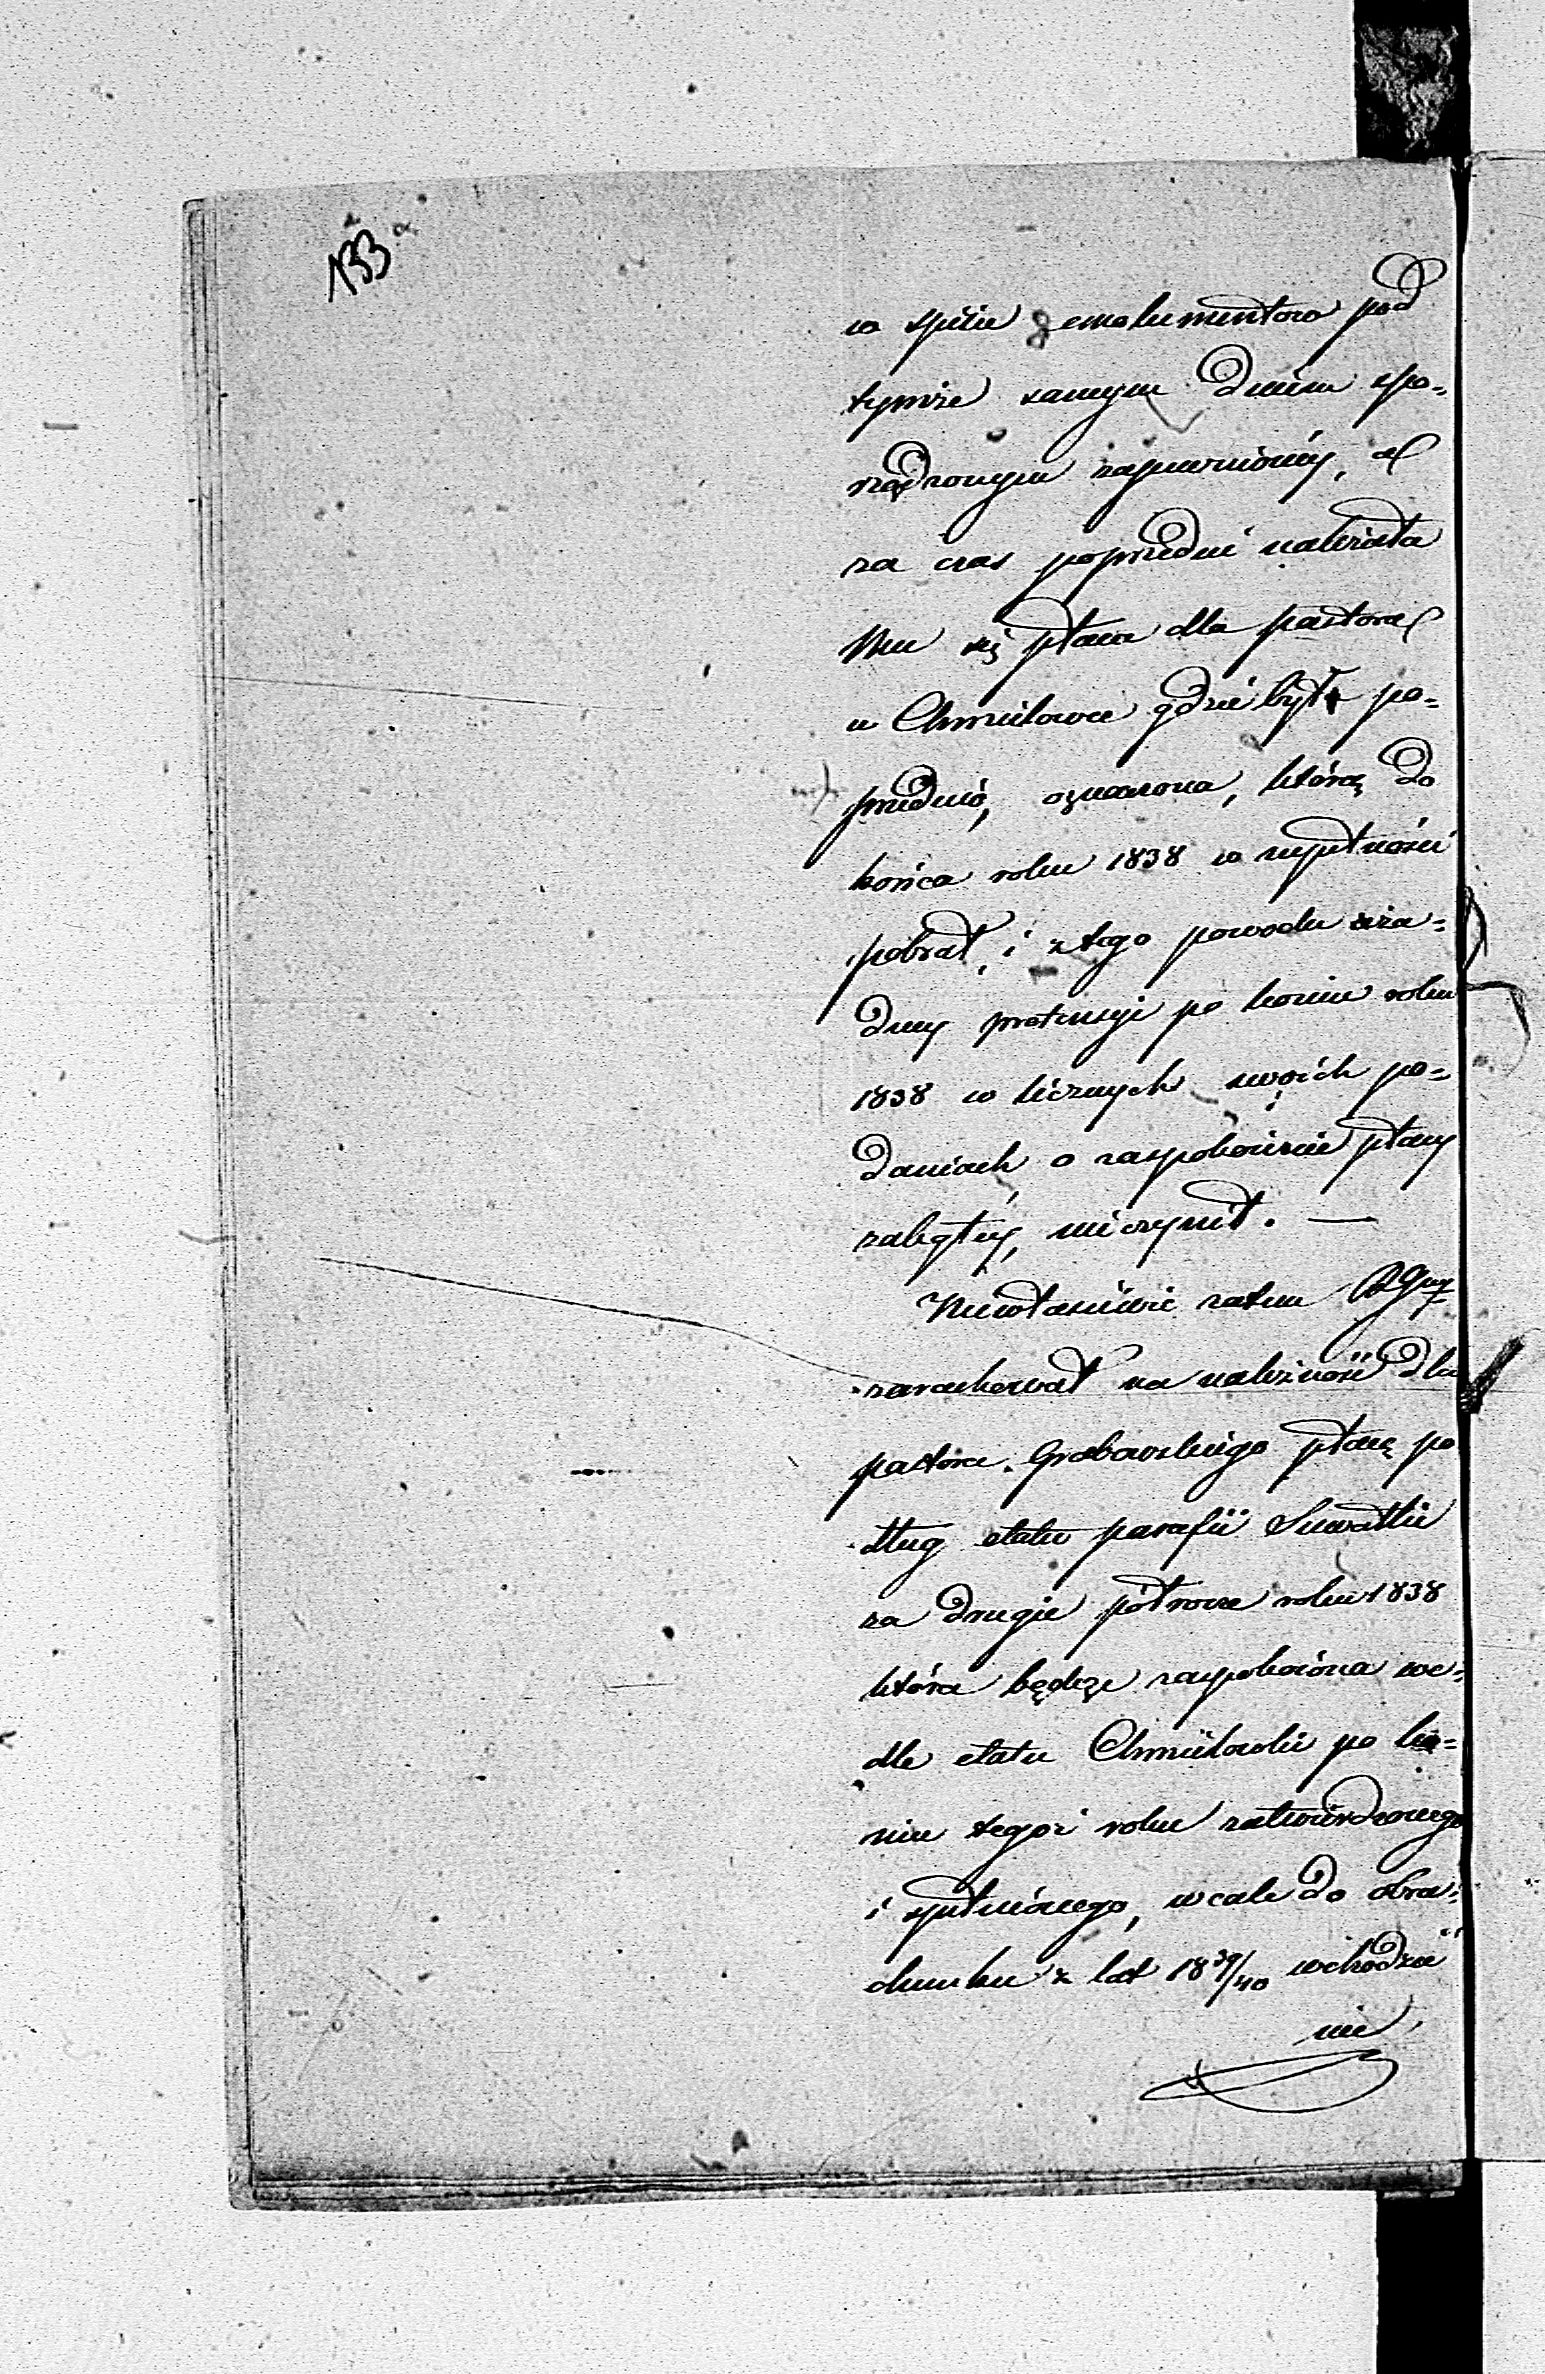 133
w spisie emolumentów pod
tymże samym dniem spo-
rządzonym zapewnionéj, a
za czas poprzedni należała
Mu się płaca dla pastora
w Chmielówce gdzie był po-
przednio, oznaczona, którą do
końca roku 1838 w zupełności
pobrał, i z tego powodu żża-
dnej pretensyi po koniec roku
1838 w licznych swoich po-
daniach o zaspokojenie płacy
zaległéj, nieczynił. —
Niewłaściwie zatem RGny
zarachował na należność dla
pastora Grabowskiego płacę po
dług etatu parafii Suwałki
za drugie półrocze roku 1838
która będąc zaspokojona we-
dle etatu Chmielówki po ko-
niec tegoż roku zatwierdzonego
i spełnionego, wcale do obra-
chunku z lat 1839/40 wchodzić
nie